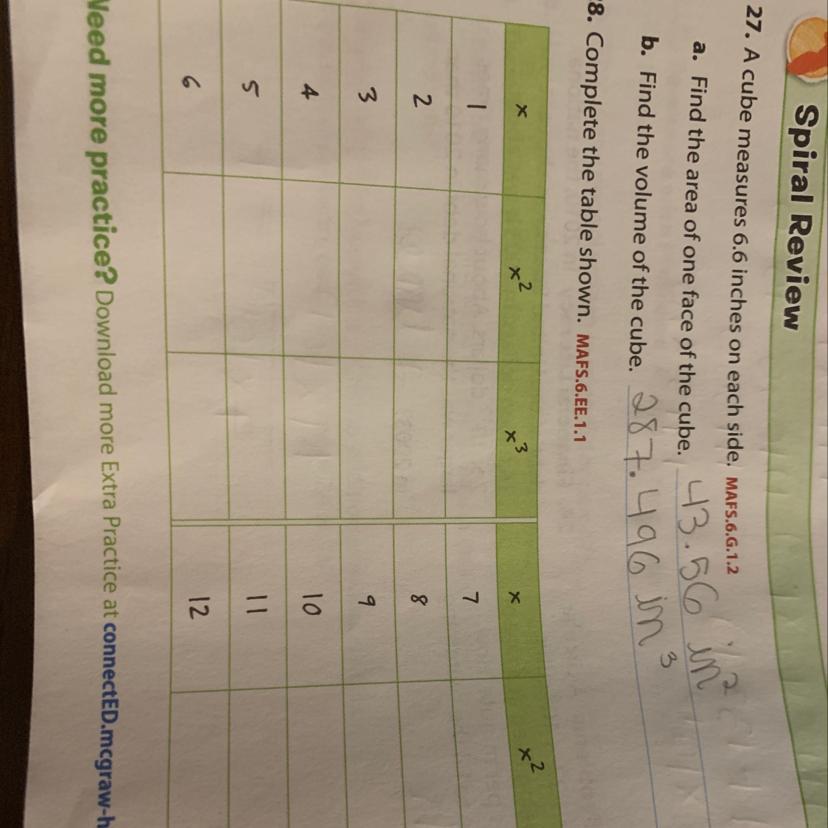 Spiral Review
27. A cube measures 6.6 inches on each side. MAFS.6.G.1.2
a. Find the area of one face of the cube. 43.56 in²
b. Find the volume of the cube. 287.496 in³
8. Complete the table shown. MAFS.6.EE.1.1
x x² x³ x x²
1 7
2 8
3 9
4 10
5 11
6 12
Need more practice? Download more Extra Practice at connectED.mcgraw-h